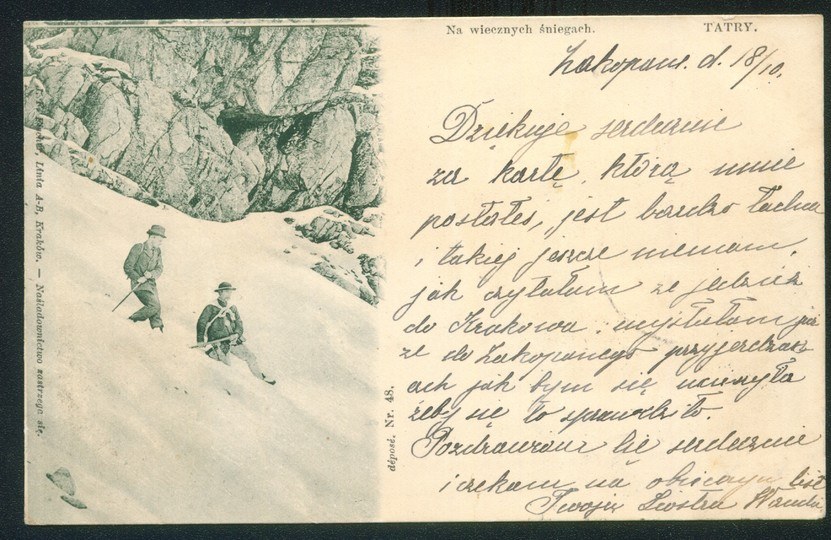 Na wiecznych śniegach. TATRY.
Zakopane. d. 18/10.
Dziękuję serdecznie
za kartę, którą mnie
posłałeś, jest bardzo ładna
i takiej jeszcze niemam,
jak czytałam ze jedziesz
do Krakowa. myślałam już
że do Zakopanego przyjedziesz
ach jak bym się ucieszyła
żeby się to sprawdziło.
Pozdrawiam Cię serdecznie
i czekam na obiecany list
Twoja Siostra Wanda
Linia A-B, Kraków. — Naśladownictwo zastrzega się.
déposé. Nr. 48.